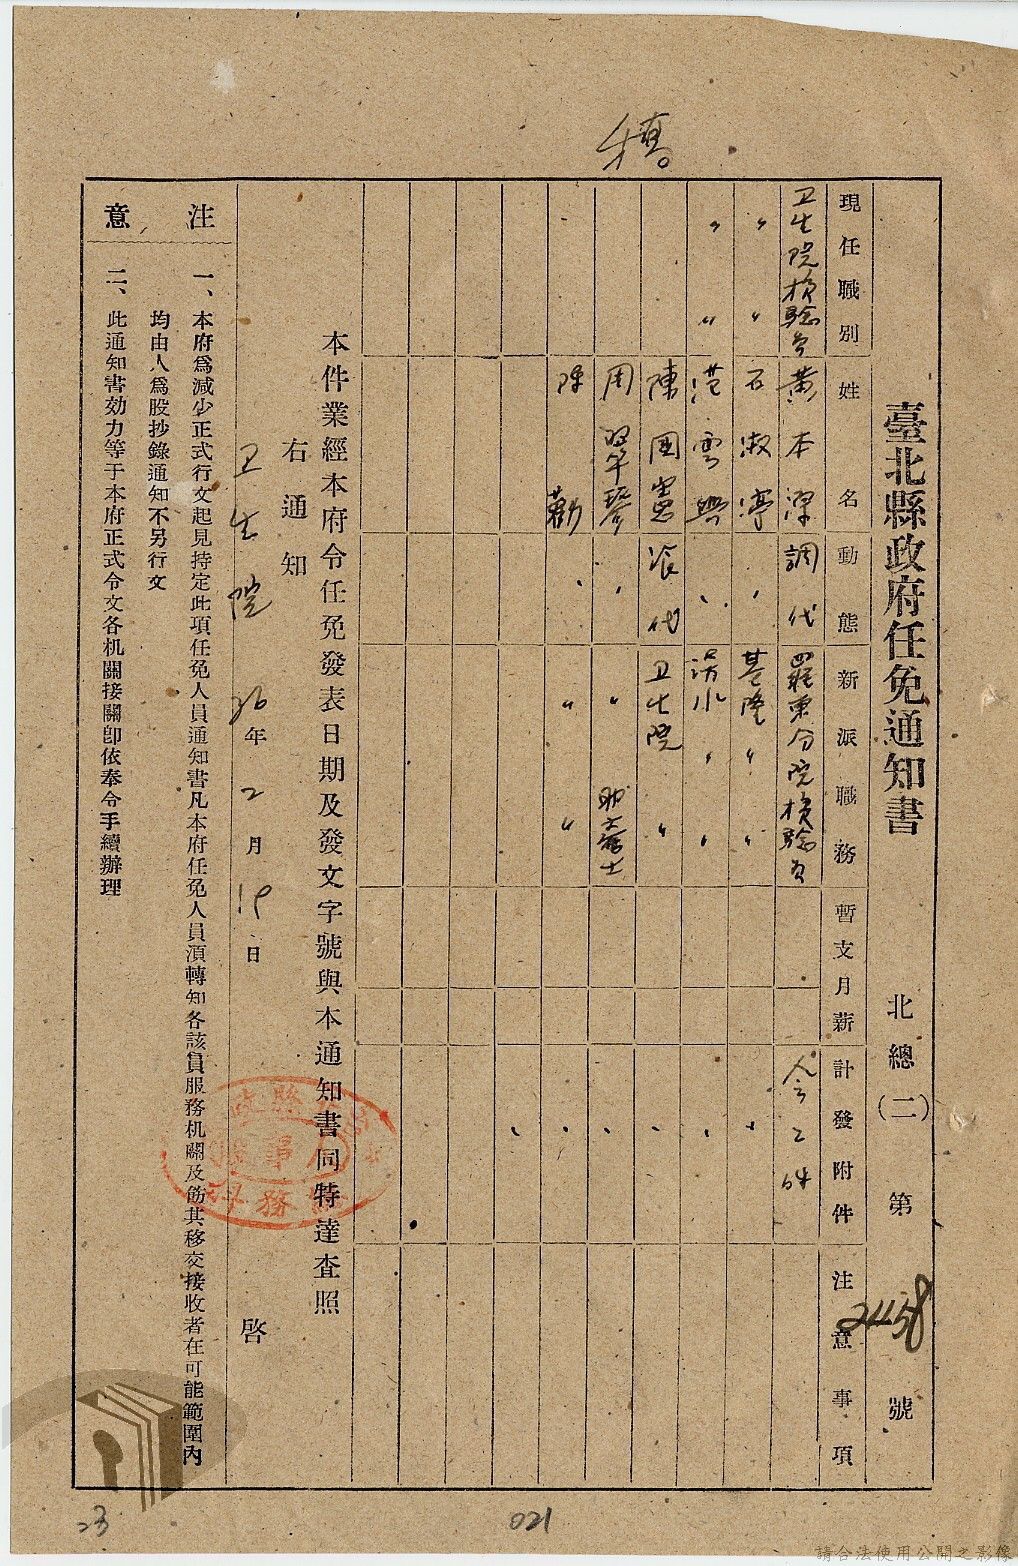 稿
臺北縣政府任免通知書 北總(二)第2458號
現任職別 姓名 動態 新派職務 暫支月薪 計發附件 注意事項
卫生院檢驗員 黃本澤 調代 羅東分院檢驗員 令乙件
〃 〃 石淑 〃 基隆 〃 〃 〃
〃 〃 雲興 〃 淡水 〃 〃 〃
陳國憲 派代 卫生院 〃 〃
周翠琴 〃 〃 助產士 〃
- 陳勤 〃 〃 〃 〃
本件業經本府令任免發表日期及發文字號與本通知書同特達查照
右通知
卫生院 36年2月19日 啓
注意
一、本府爲減少正式行文起見持定此項任免人員通知書凡本府任免人員須轉知各該員服務机關及飭其移交接收者在可能範圍內
均由人爲股抄錄通知不另行文
二、此通知書効力等于本府正式令文各机關接關卽依奉令手續辦理
23
021
請合法使用公開之影像